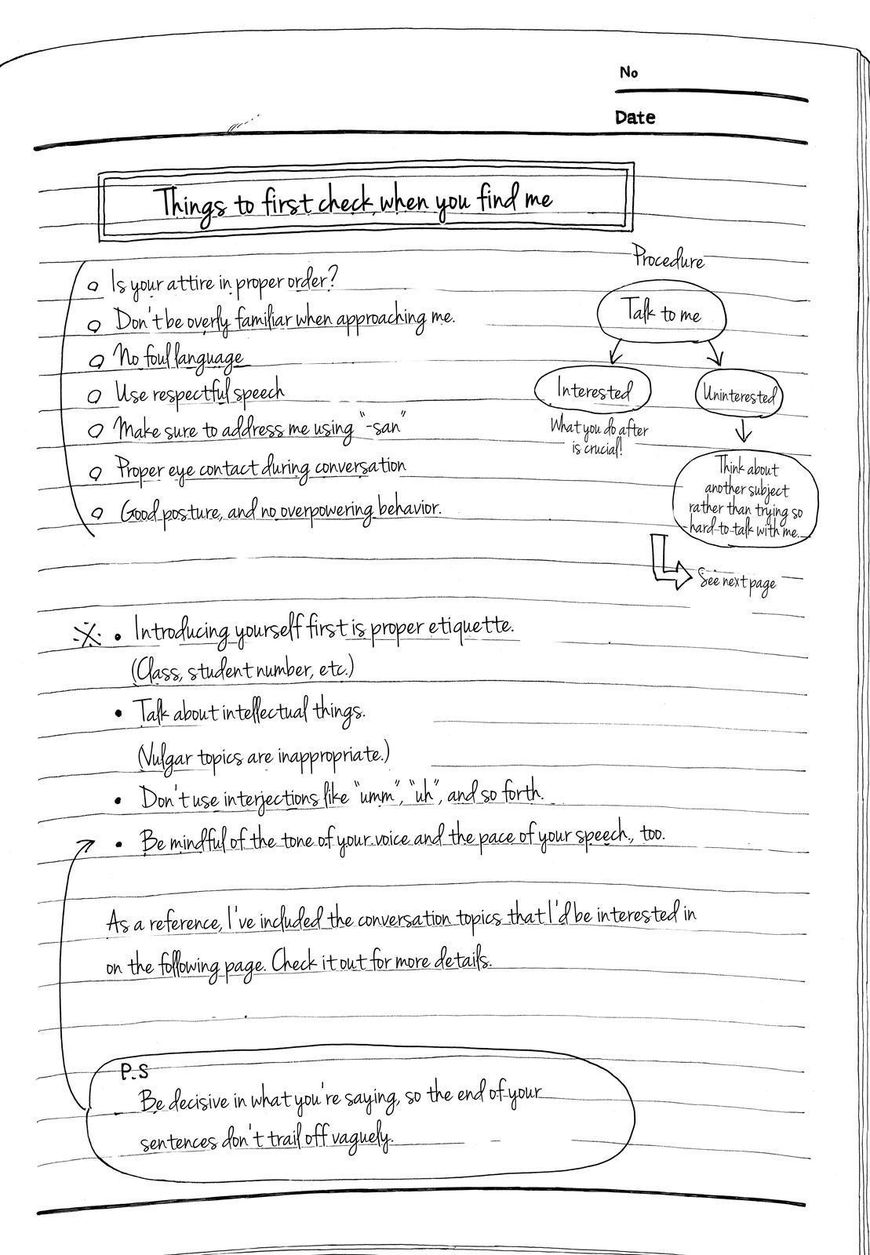 No
Date
Things to first check when you find me
Is your attire in proper order?
Don't be overly familiar when approaching me.
No foul language
Use respectful speech
Make sure to address me using "-san"
Proper eye contact during conversation
Good posture, and no overpowering behavior.
Procedure
Talk to me
Interested
What you do after
is crucial!
Uninterested
Think about
another subject
rather than trying so
hard to talk with me...
See next page
※ • Introducing yourself first is proper etiquette.
(Class, student number, etc.)
• Talk about intellectual things.
(Vulgar topics are inappropriate.)
• Don't use interjections like "umm", "uh", and so forth.
• Be mindful of the tone of your voice and the pace of your speech, too.
As a reference, I've included the conversation topics that I'd be interested in
on the following page. Check it out for more details.
P.S
Be decisive in what you're saying, so the end of your
sentences don't trail off vaguely.